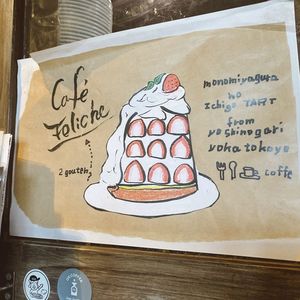 Café
Foliche
2 gouter
monomiyagura
no
Ichigo TART
from
yoshinogari
yokatokoyo
coffe